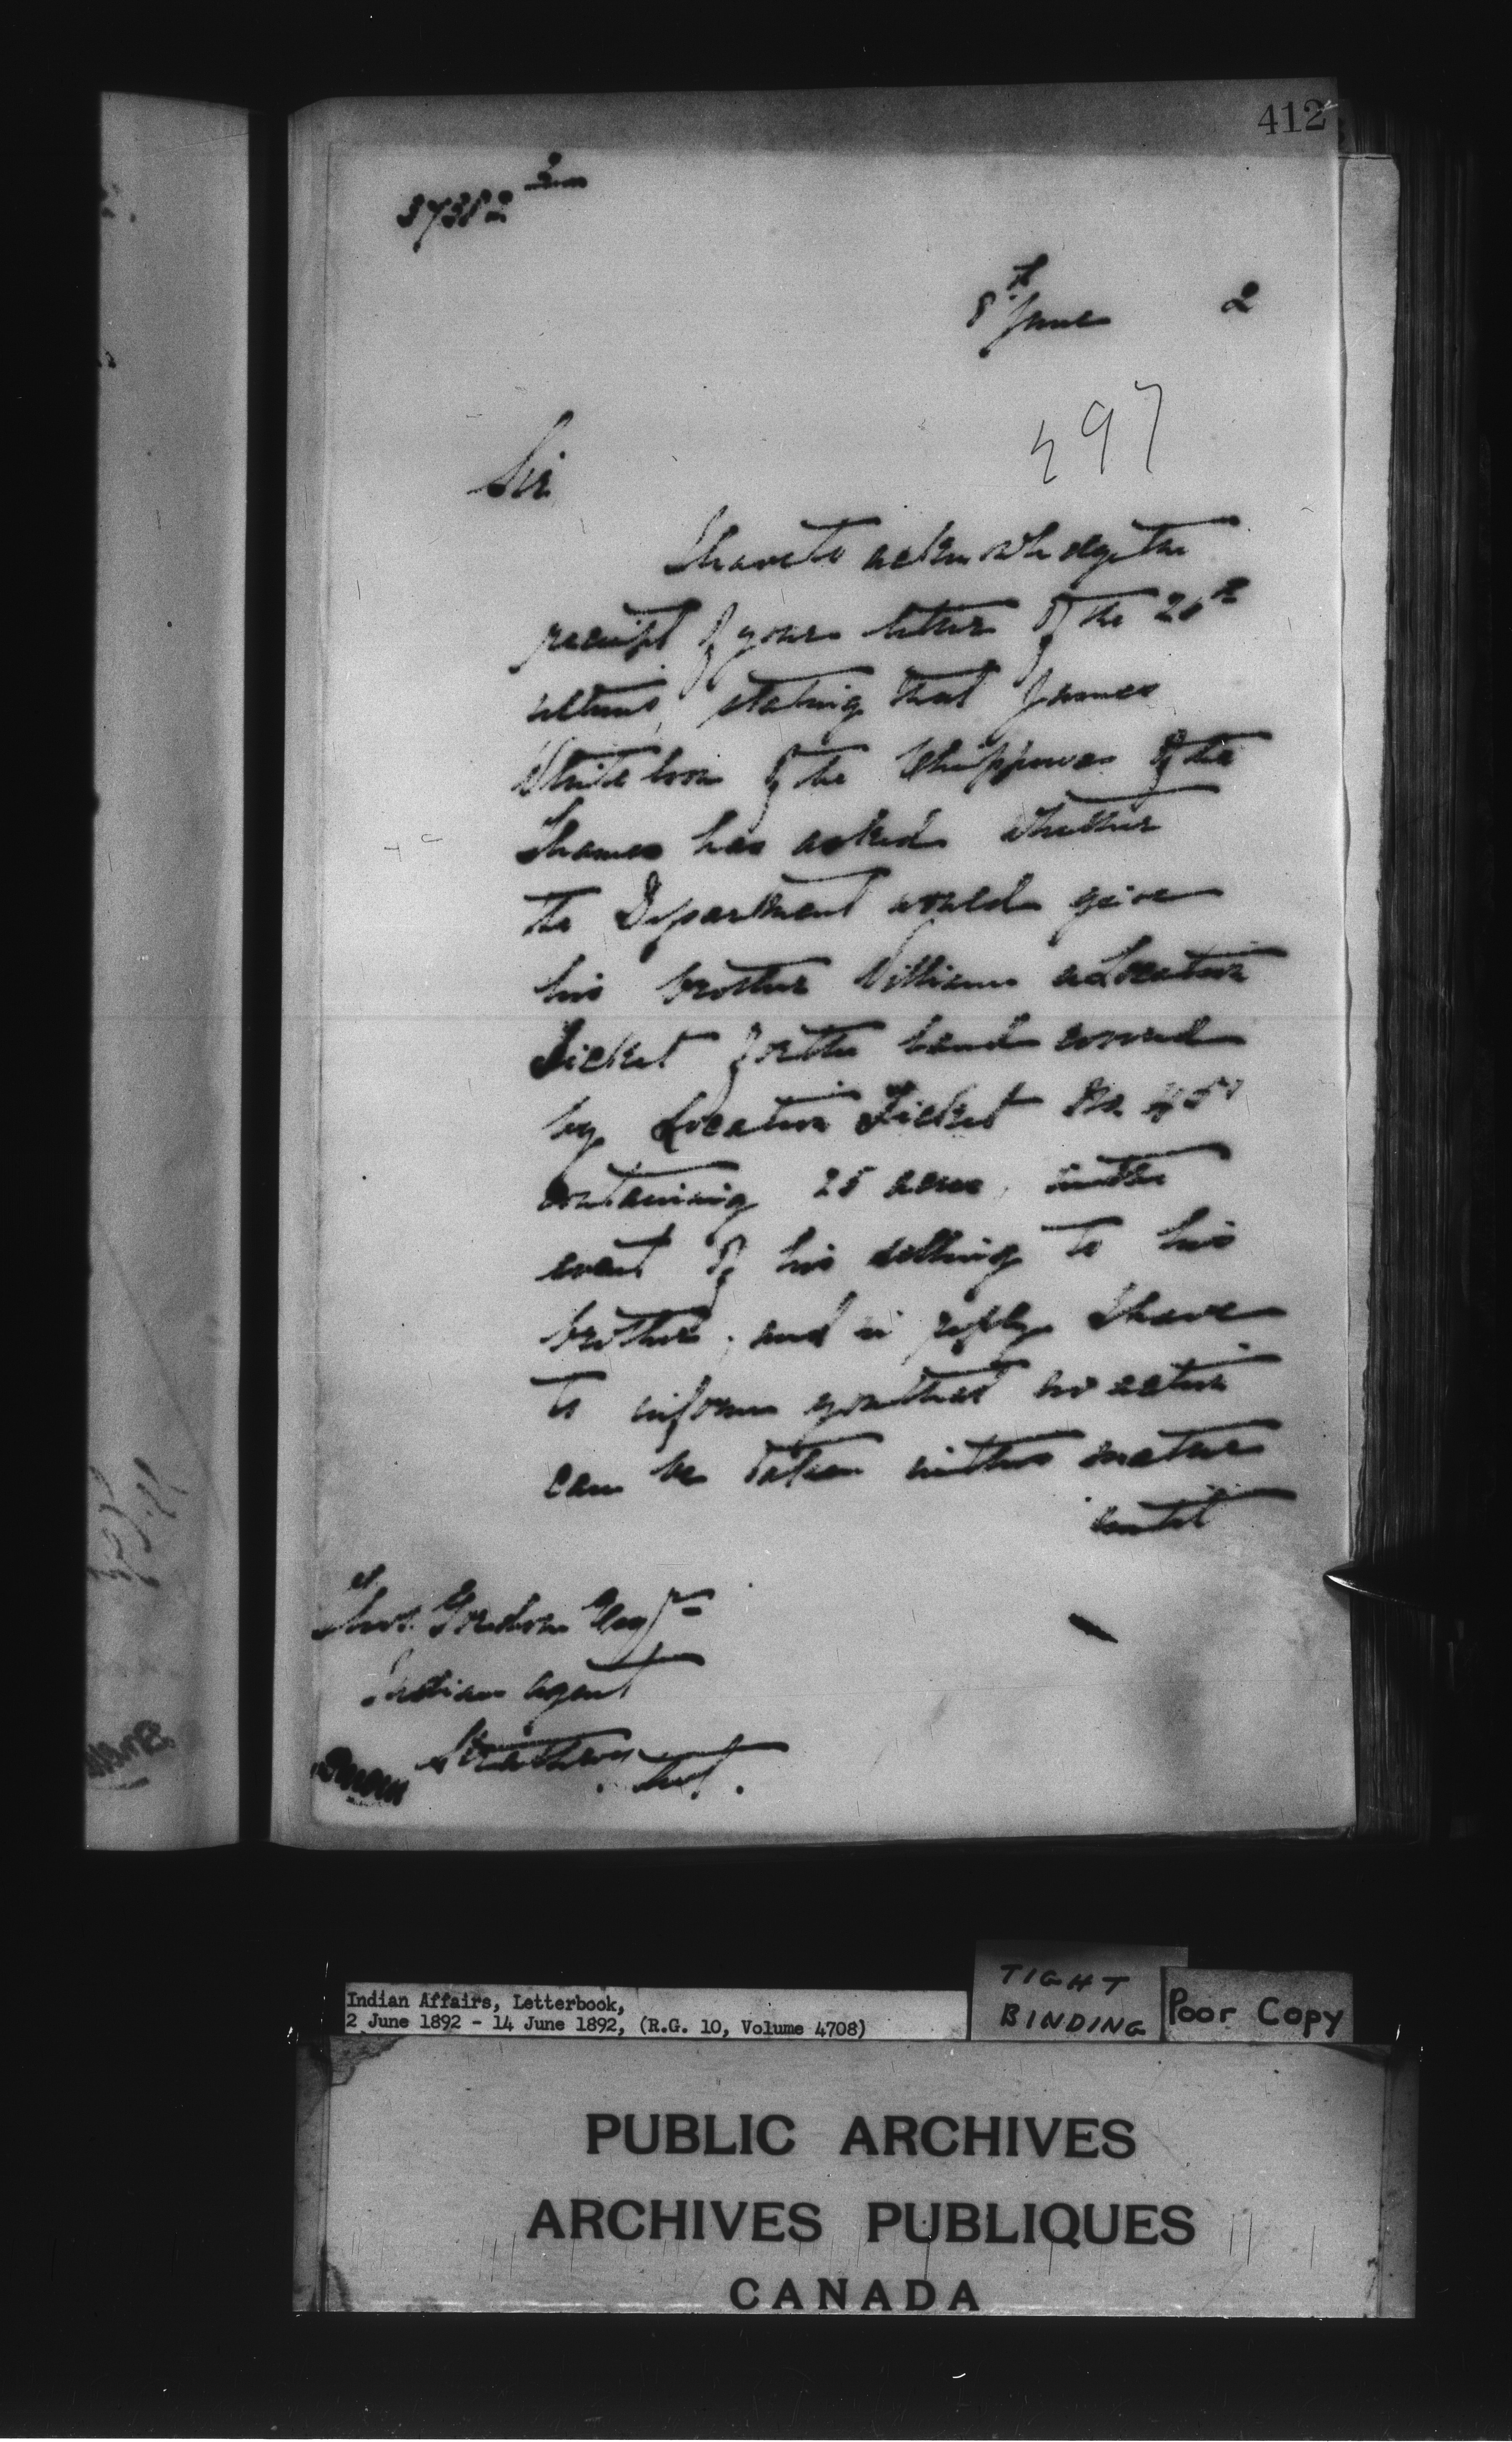 412
37382 2
8th June 2
297
Sir
I have to acknowledge the
receipt of your letter of the 26th
ultimo, stating that James
Whiteloon of the Chippewas of the
Thames has asked whether
the Department would give
his brother William a Location
Ticket for the land covered
by Location Ticket No 45
containing 25 acres, in the
event of his selling to his
brother, and in reply I have
to inform you that no action
can be taken in this matter
until
Thos. Gordon Esqre
Indian Agent
Strathroy
Ont.
Indian Affairs, Letterbook,
2 June 1892 - 14 June 1892, (R.G. 10, Volume 4708)
TIGHT
BINDING
Poor Copy
PUBLIC ARCHIVES
ARCHIVES PUBLIQUES
CANADA